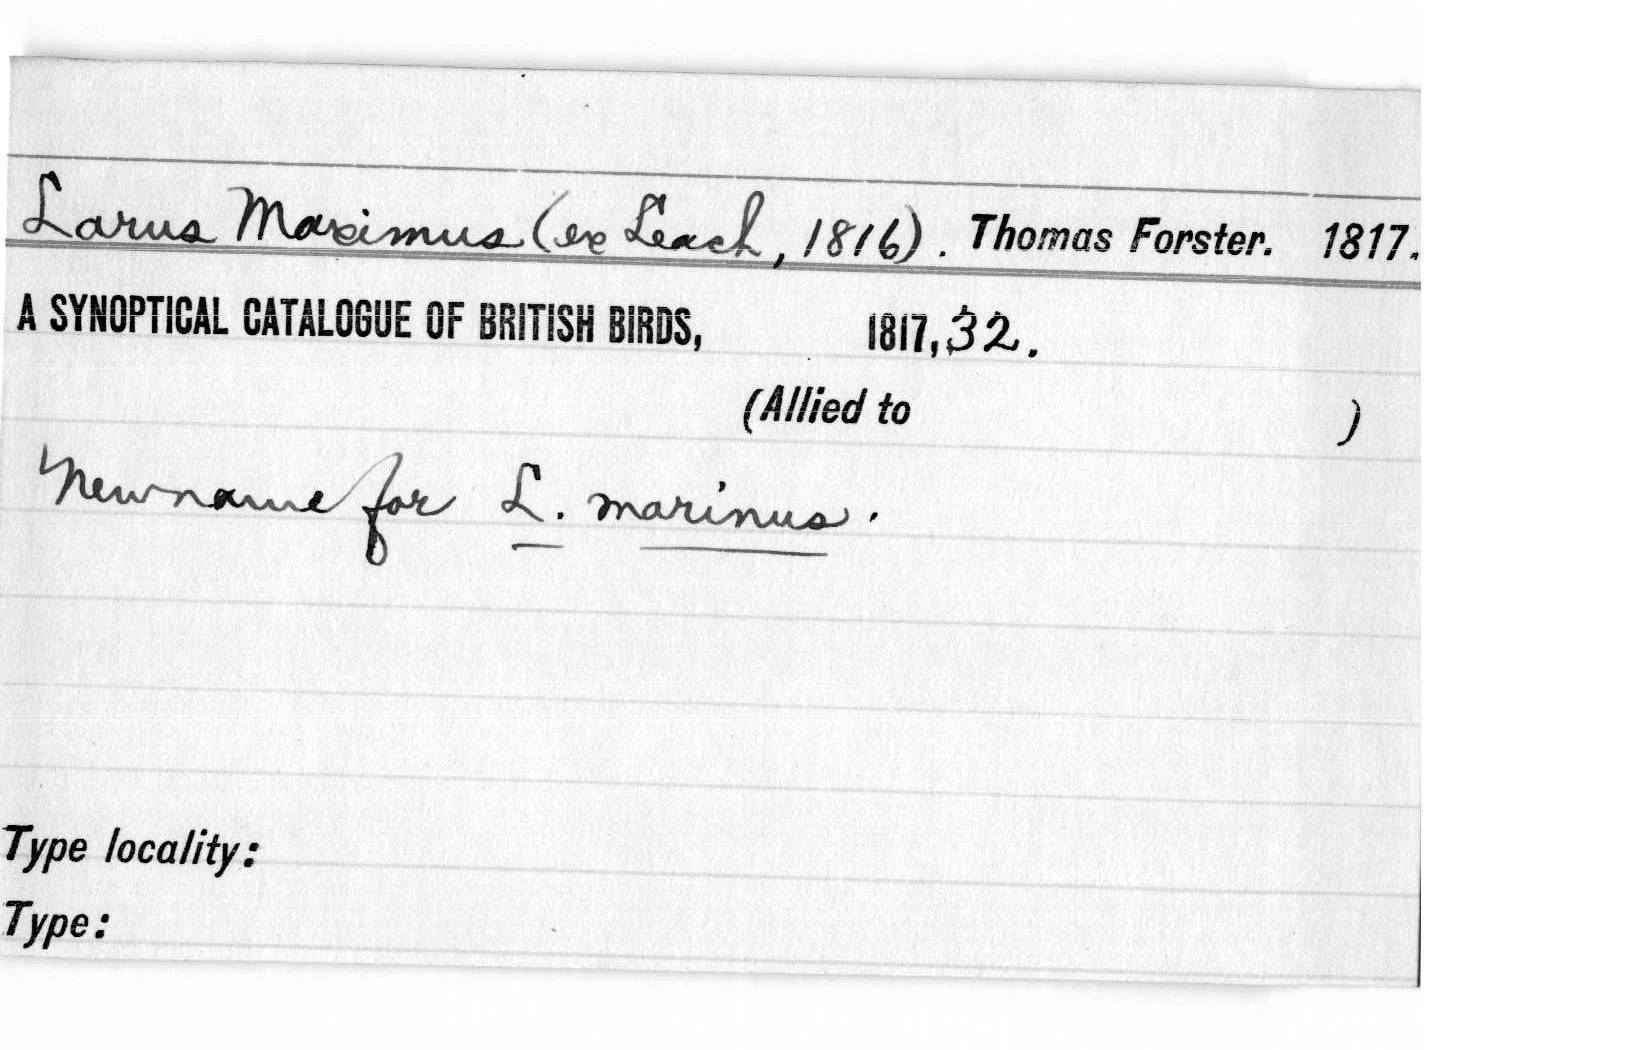 Larus Maximus (ex Leach, 1816). Thomas Forster. 1817.
A SYNOPTICAL CATALOGUE OF BRITISH BIRDS, 1817, 32.
(Allied to )
New name for L. marinus.
Type locality:
Type: